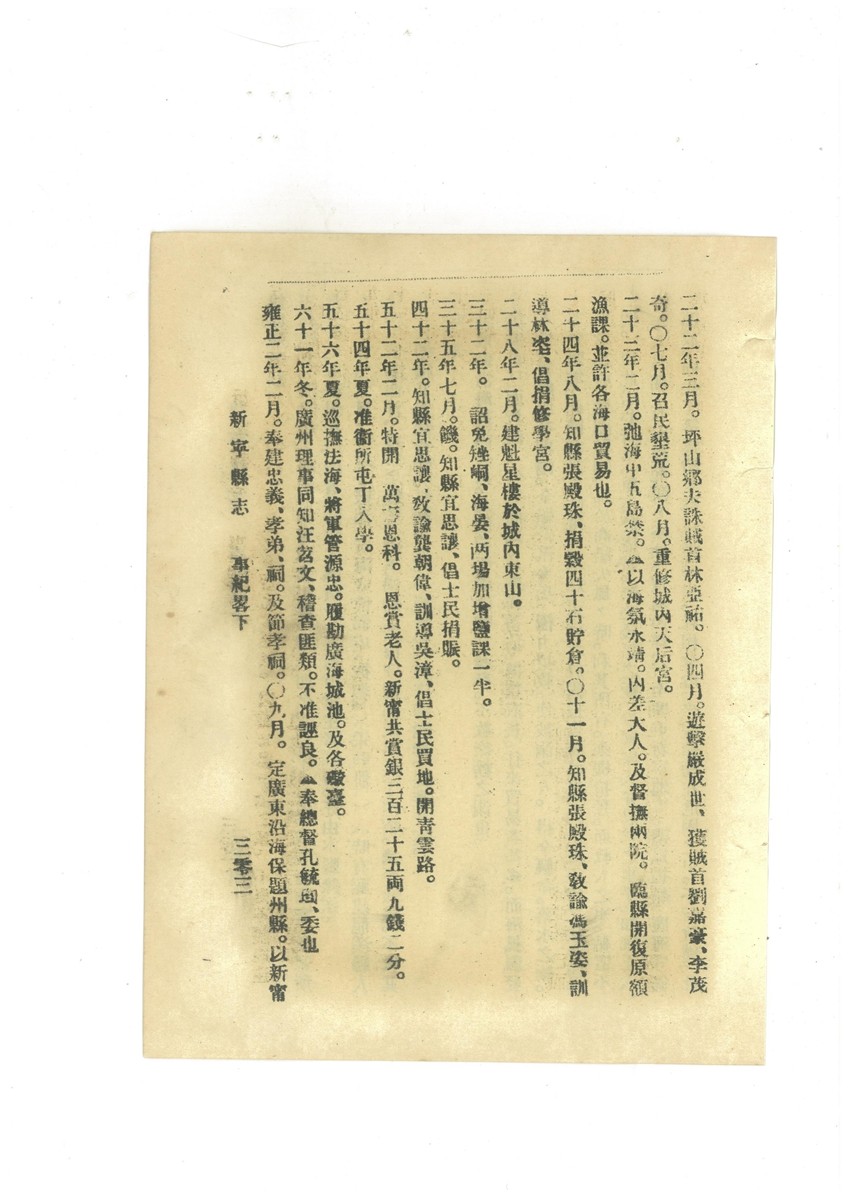 二十二年三月。 坪山鄉夫誅賊首林亞祐。〇四月。遊擊嚴成世、獲賊首劉嘉豪、李茂
奇。〇七月。召民墾荒。〇八月。重修城內天后宮。
二十三年二月。弛海中五島禁。▲以海氛永靖。內差大人。及督撫兩院。臨縣開復原額
漁課。並許各海口貿易也。
二十四年八月。知縣張殿珠、捐穀四十石貯倉。〇十一月。知縣張殿珠、敎諭馮玉姿、訓
導林宅、倡捐修學宮。
二十八年二月。建魁星樓於城內東山。
三十二年。 詔免矬峒、海晏、兩場加增鹽課一半。
三十五年七月。饑。知縣宜思讓、倡士民捐賑。
四十二年。知縣宜思讓、敎諭龔朝偉、訓導吳漳、倡士民買地。開靑雲路。
五十二年二月。特開 萬壽恩科。 恩賞老人。新甯共賞銀三百二十五兩九錢二分。
五十四年夏。准衞所屯丁入學。
五十六年夏。巡撫法海、將軍管源忠。履勘廣海城池。及各礮臺。
六十一年冬。廣州理事同知汪茗文、稽查匪類。不准誣良。▲奉總督孔毓珣、委也
雍正二年二月。奉建忠義、孝弟、祠。及節孝祠。〇九月。 定廣東沿海保題州縣。以新甯
新寧縣志 事紀畧下 三零三